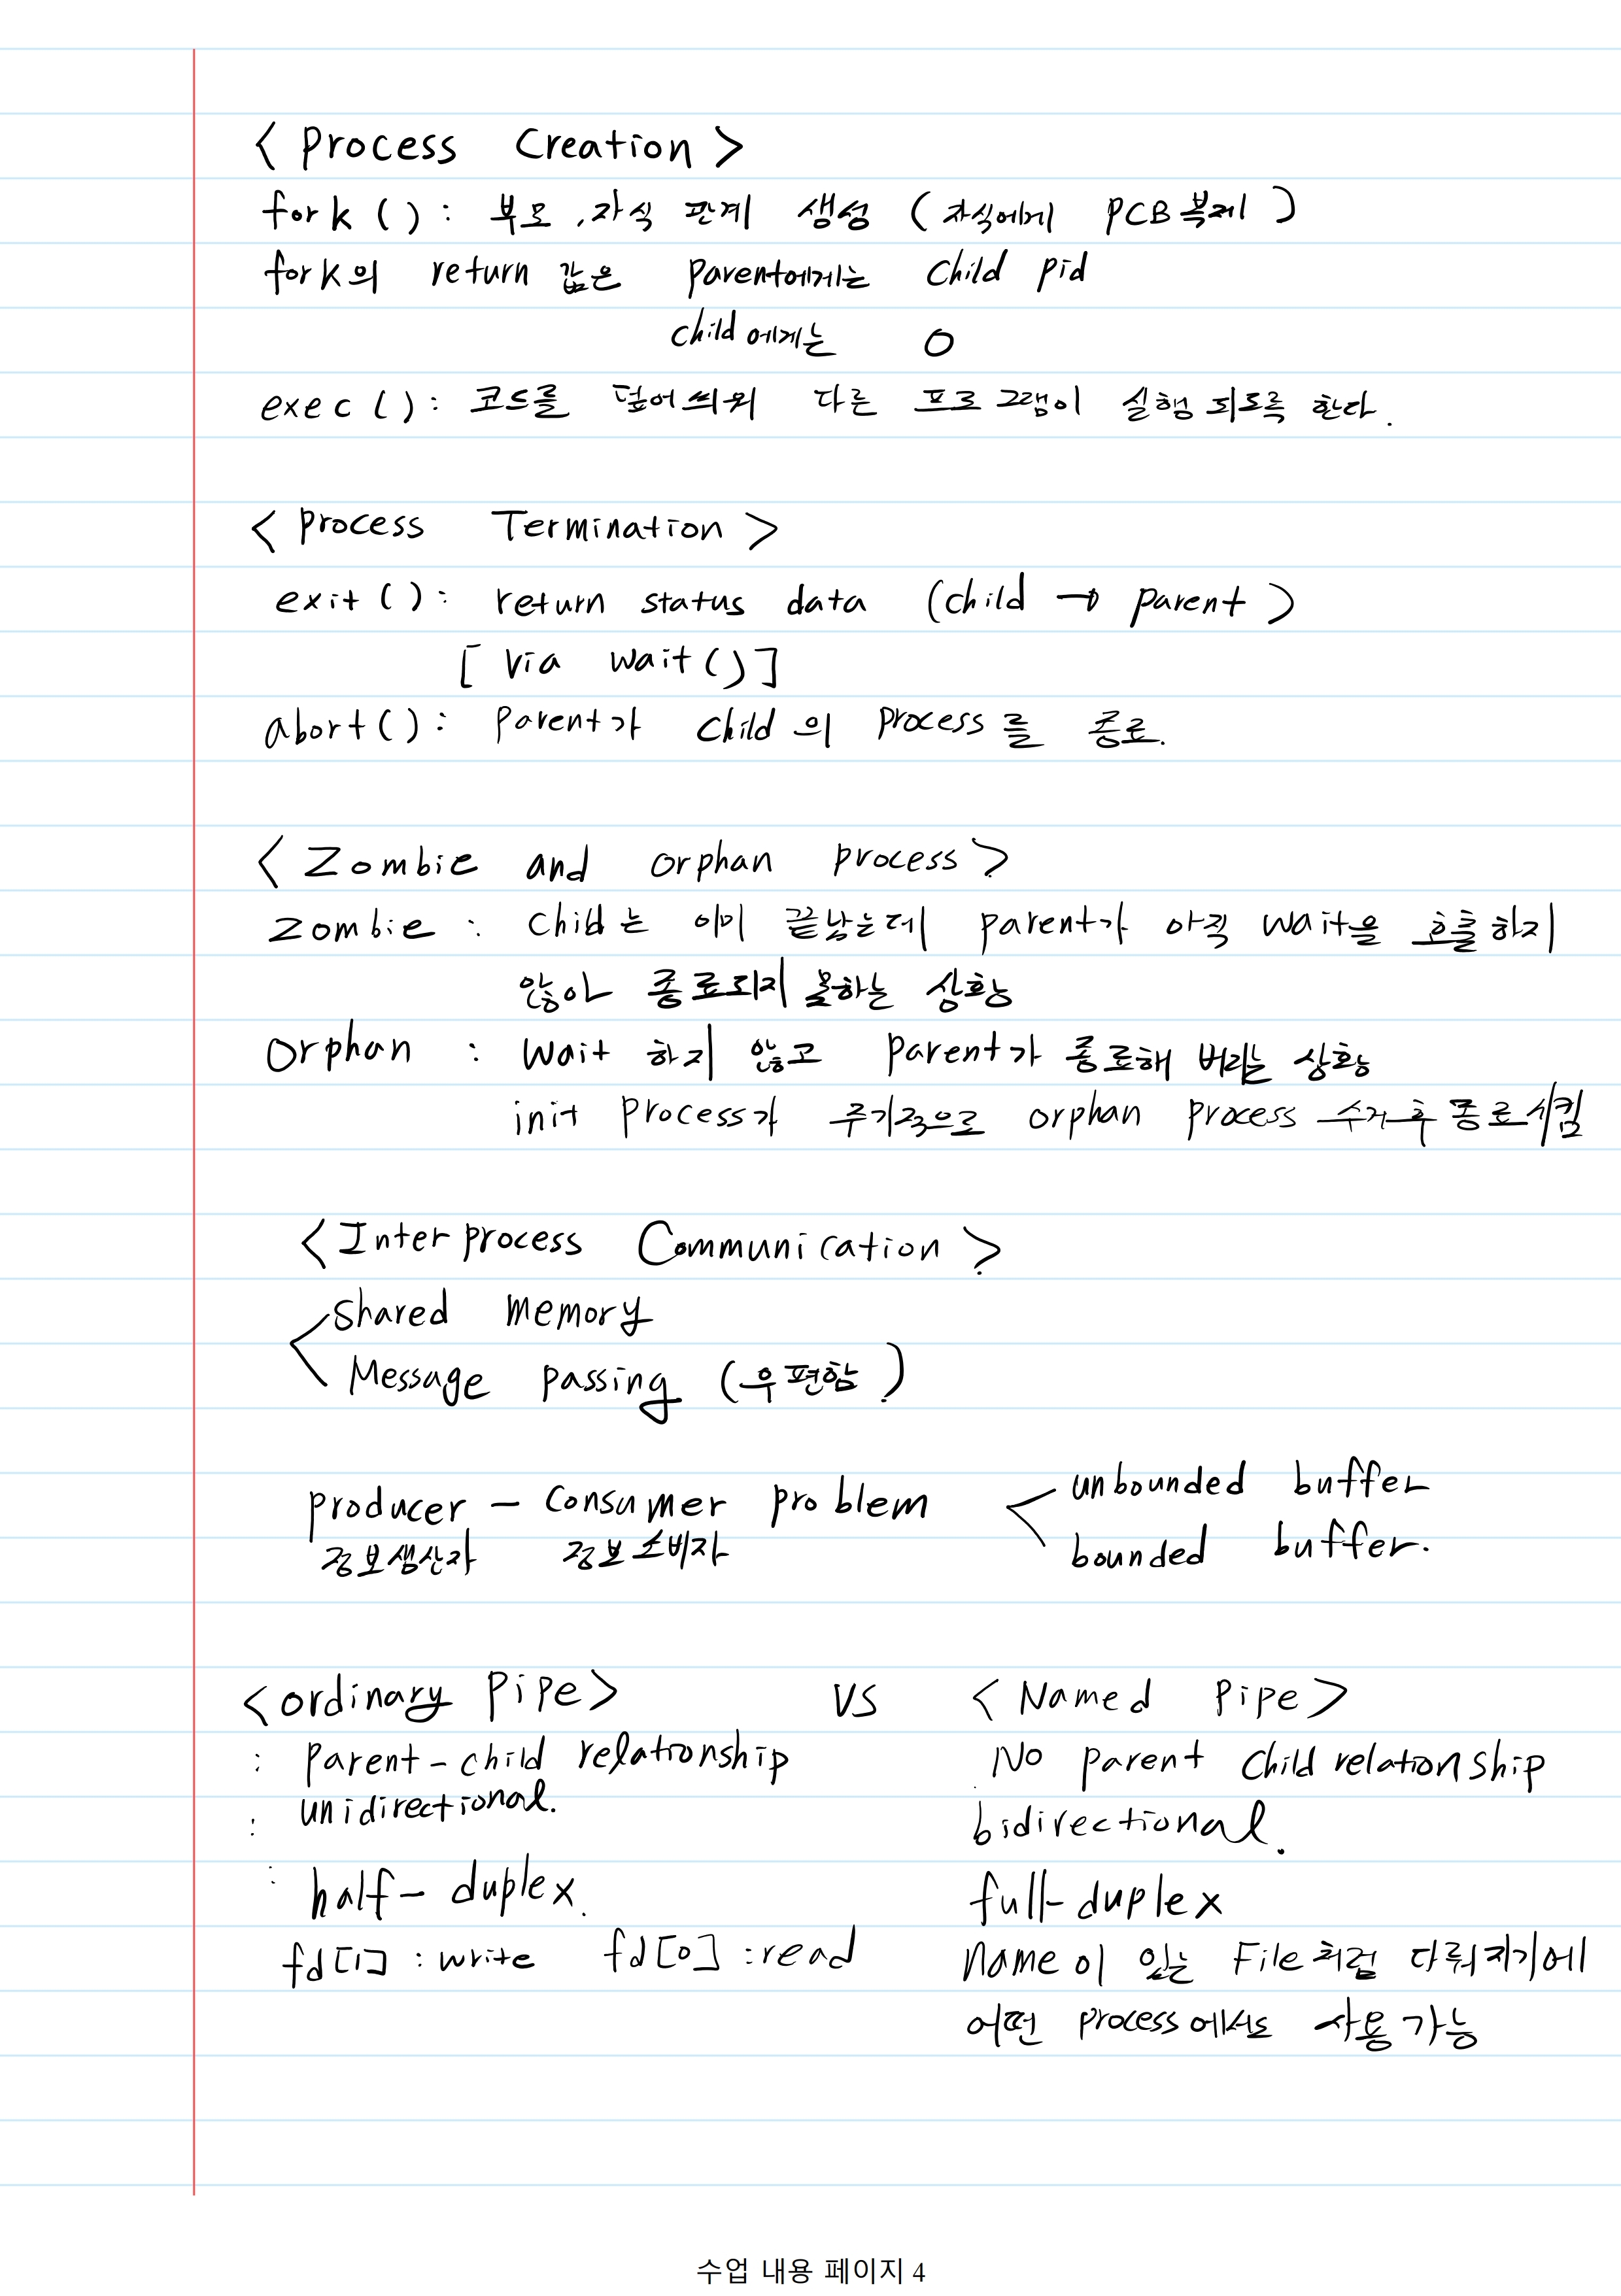 < Process Creation >
fork ( ) : 부모, 자식 관계 생성 ( 자식에게 PCB 복제 )
fork의 return 값은 parent에게는 child pid
child에게는 0
exec ( ) : 코드를 덮어 씌워 다른 프로그램이 실행 되도록 한다.
< process Termination >
exit ( ) : return status data (child → parent )
[ via wait ( ) ]
abort ( ) : parent가 child의 process를 종료.
< Zombie and orphan process >
zombie : child는 이미 끝났는데 parent가 아직 wait을 호출하지
않아 종료되지 못하는 상황
Orphan : wait 하지 않고 parent가 종료해 버리는 상황
init process가 주기적으로 orphan process 수거 후 종료시킴
< Interprocess Communication >
shared memory
Message passing (우편함 )
producer - consumer problem < unbounded buffer
정보생산자 정보소비자 bounded buffer.
<ordinary pipe> VS < Named pipe >
: parent-child relationship No parent child relationship
: unidirectional. bidirectional.
: half- duplex. full- duplex
fd[1] : write fd[0] : read name이 있는 File처럼 다뤄지기에
어떤 process에서도 사용가능
수업 내용 페이지 4